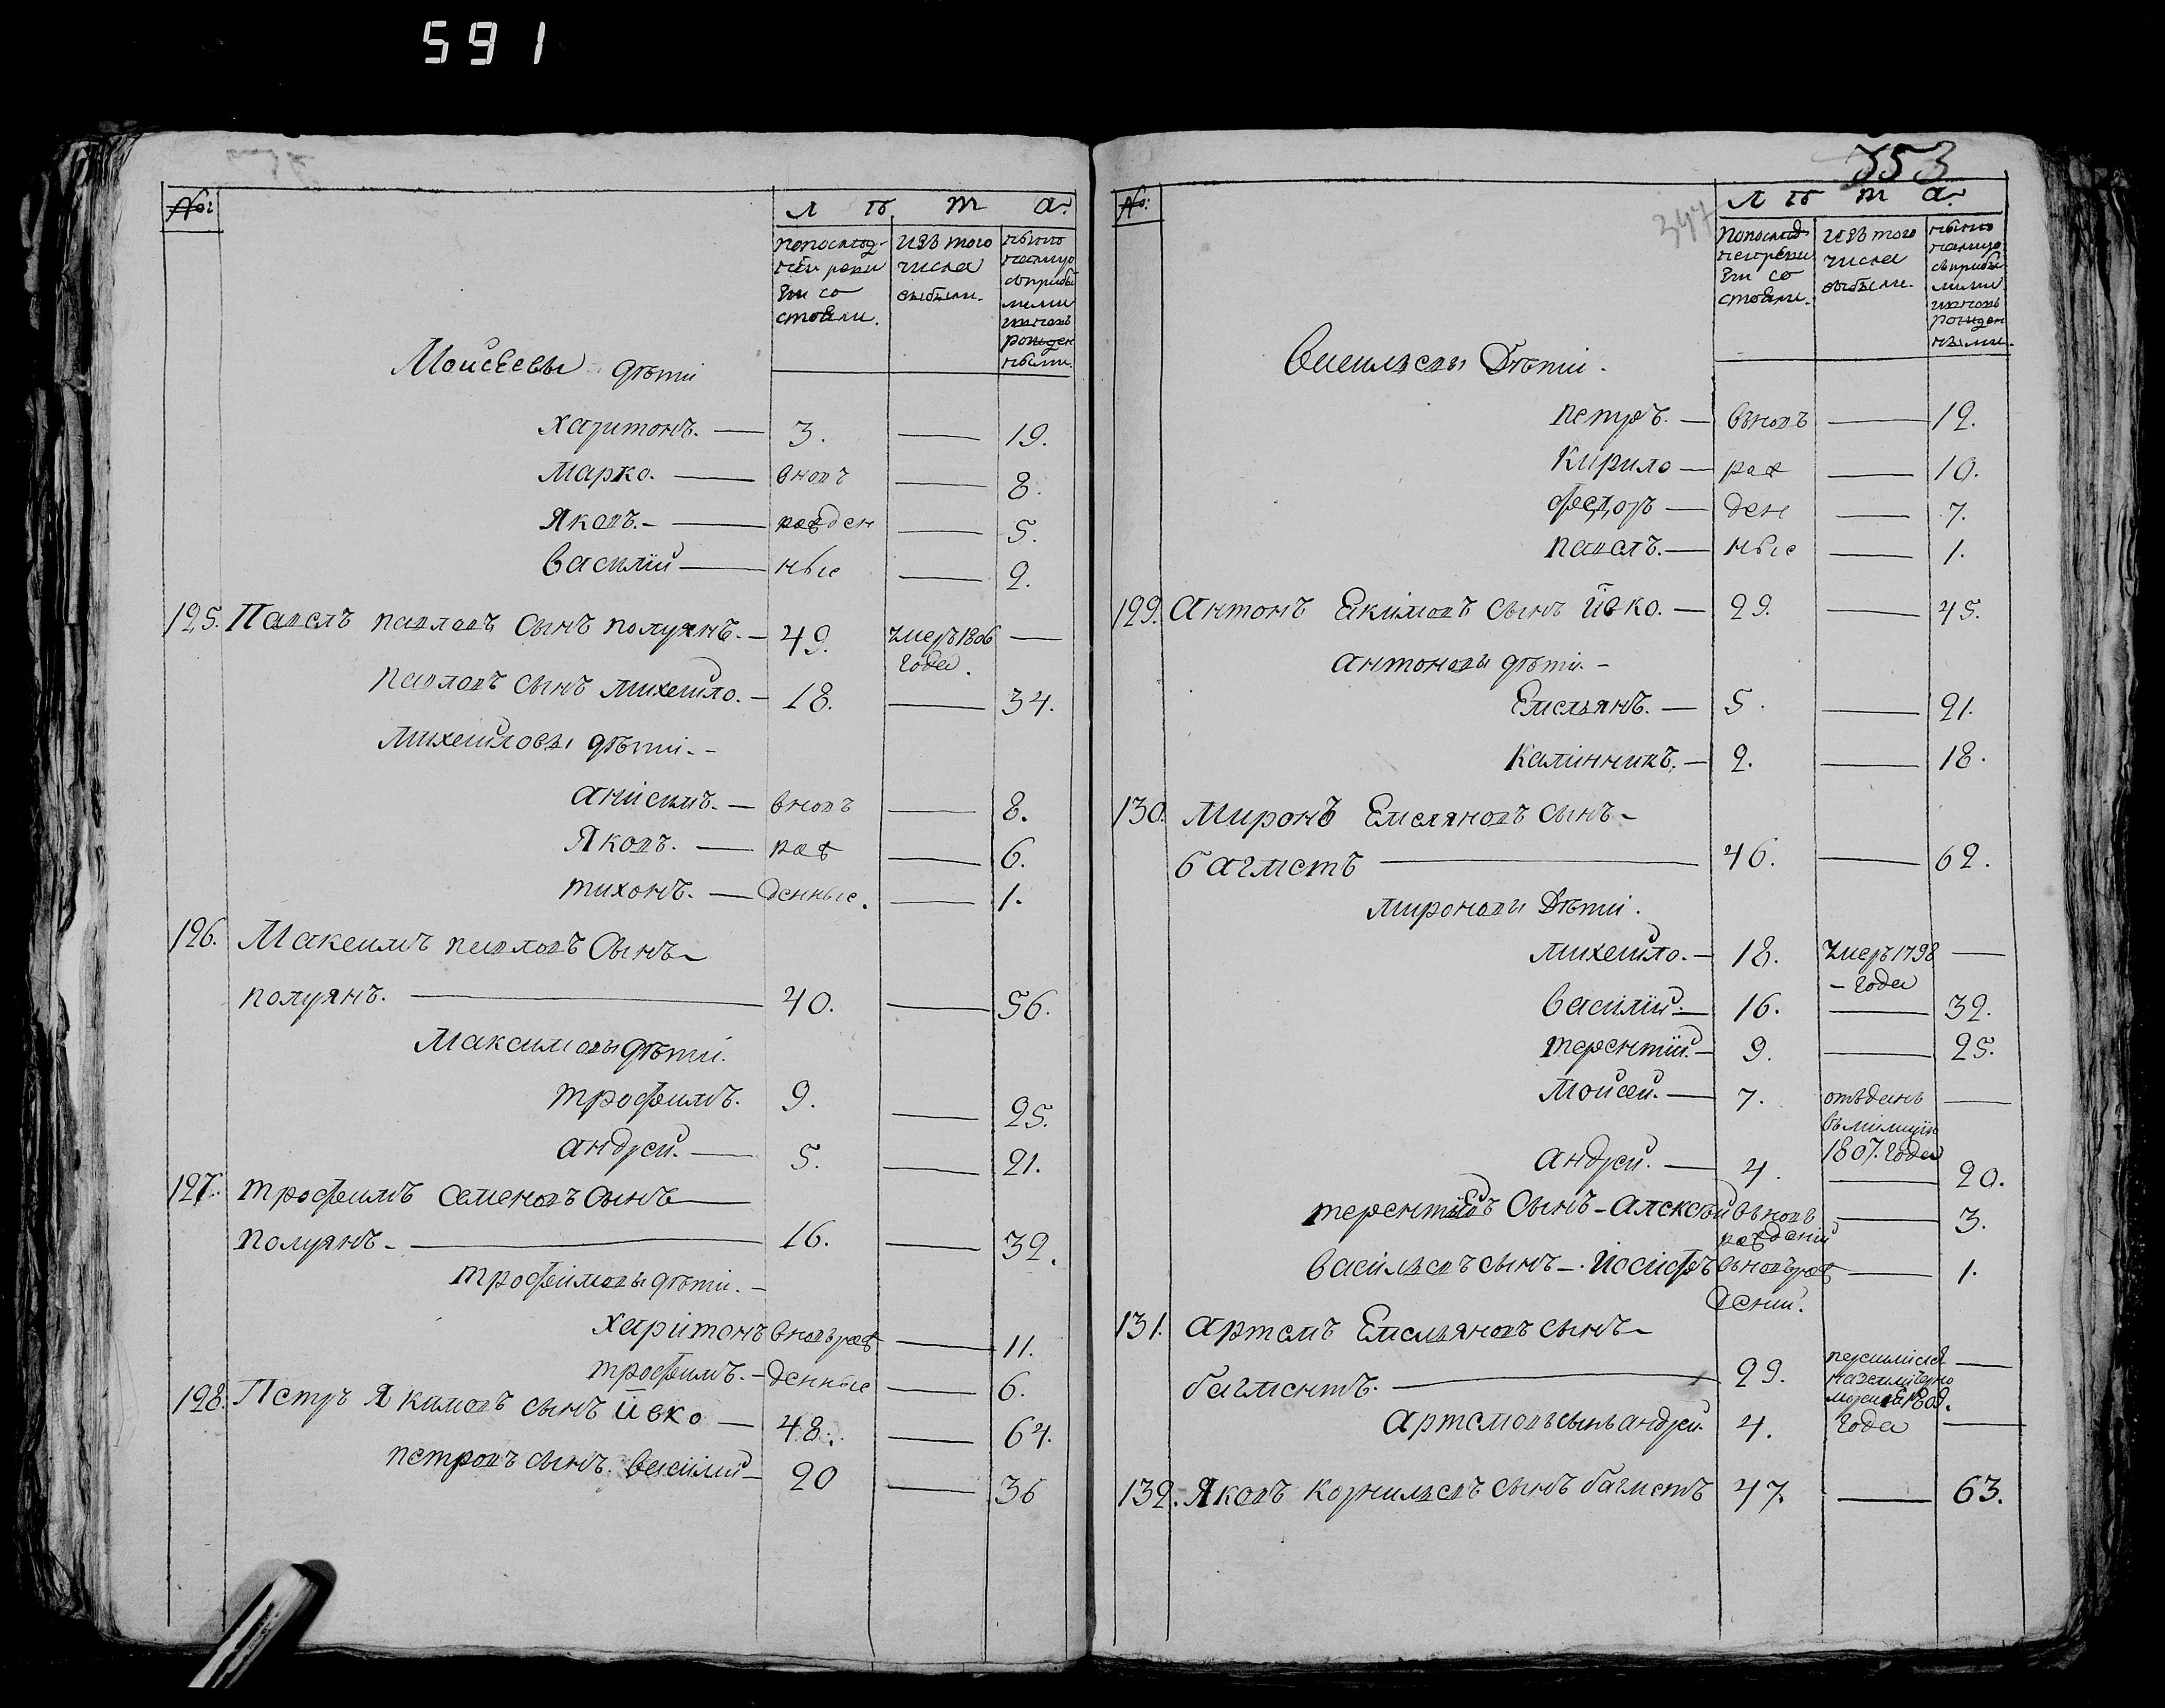 591
№:
Л ѣ т а:
попослѣд-
ней реви
зіи со
стояли.
изъ того
числа
выбыли.
нынѣ
налицо
съприбы
лыми
ивновь
рожден
ными.
Моисеевы дѣти
харитонъ. — 3. — 19.
Марко. — вновъ — 8.
Яковъ. — рожден — 5.
василій — ные — 2.
125. Павелъ павловъ сынъ полуянъ. — 49. умеръ 1806 —
года.
павловъ сынъ михайло. — 18. — 34.
михайловы дѣти. -
анисимъ. — вновъ — 8.
Яковъ. — рож — 6.
тихонъ. — денные. — 1.
126. Максимъ павловъ Сынъ
полуянъ. — 40. — 56.
Максимовы дѣти.
трофимъ. 9. — 25.
андрей. — 5. — 21.
127. трофимъ семеновъ сынъ —
полуянъ — 16. — 32.
трофимовы дѣти. -
харитонъ вновърож — 11.
трофимъ. — денные — 6.
128. Петръ Якимовъ сынъ ивко — 48. — 64.
петровъ сынъ василій — 20 — 36
353
347
№:
Л ѣ т а:
попослѣд
нейреви
зіи со
стояли.
изъ того
числа
выбыли.
нынѣ
налицо
съприбы
лыми
ивновь
рожден
ными.
Васильевы Дѣти.
петръ. — въновъ — 12.
Кирило — рож — 10.
федоръ — ден — 7.
павелъ. — ные — 1.
129. антонъ Екимовъ сынъ ивко. — 29. — 45.
антоновы дѣти. -
Емельянъ. — 5. — 21.
Калинникъ. — 2. — 18.
130. миронъ Емеляновъ сынъ -
багметъ — 46. — 62.
мироновы Дѣти.
михайло. — 18. умеръ 1798 —
- года
василій. — 16. — 32.
терентій. — 9. — 25.
Моисей. — 7. отъданъ —
въмилицію
1807. года
андрей. — 4. — 20.
терентіевъ сынъ - алексѣй въновъ — 3.
рожденій
васильевъ сынъ — іосифъ вновърож — 1.
деній.
131. артемъ Емельяновъ сынъ -
багметъ. — 29. —
артемовъ сынъ андрей. 4. года —
132. Яковъ корнильевъ сынъ багметъ 47. — 63.